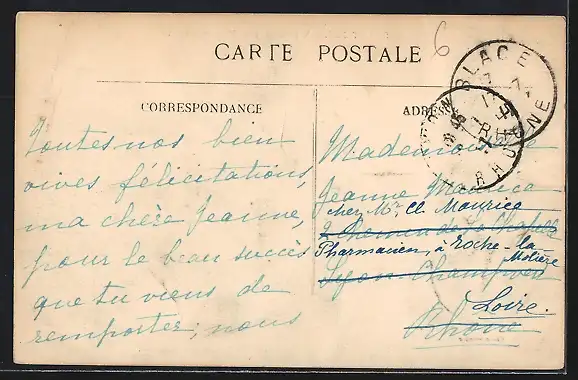 6
CARTE POSTALE
CORRESPONDANCE
Toutes nos bien
vives félicitations,
ma chère Jeanne,
pour le beau succès
que tu viens de
remporter; nous
ADRESSE
Mademoiselle
Jeanne Maurice
chez Mr. Cl. Maurice
Chemin de la Chapelle
Pharmacien, à Roche-la
Molière
Lyon-Champvert
Loire.
Rhône
BLACE
RHONE